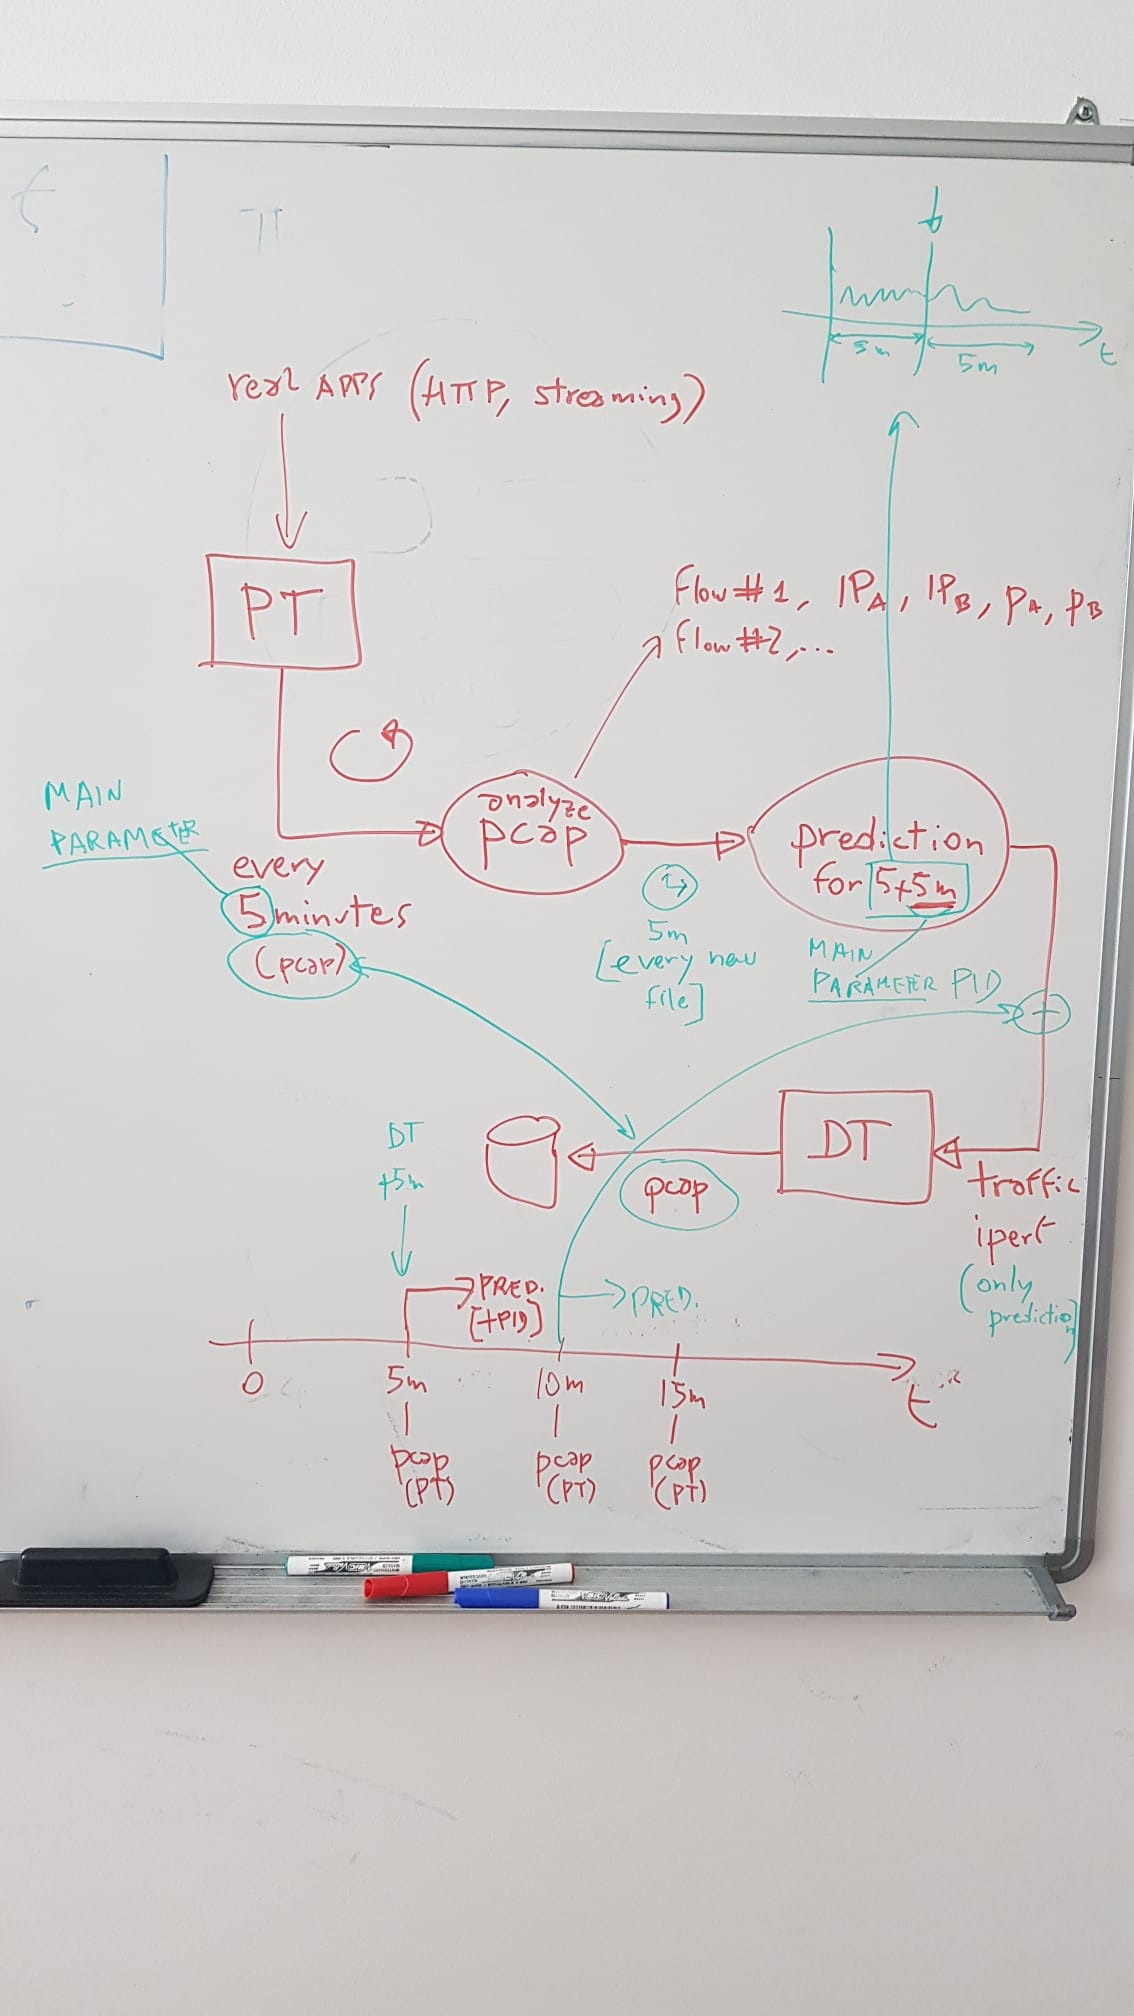 π
t
5m
5m
t
real APPS (HTTP, streaming)
PT
Flow #1, IPA, IPB, PA, PB
Flow #2, ...
MAIN
PARAMETER
every
5 minutes
(pcap)
analyze
pcap
5m
[every new
file]
prediction
for 5+5m
MAIN
PARAMETER PID
+
DT
+5m
DT
pcap
traffic
iperf
(only
prediction)
PRED.
[+PID]
PRED.
0
5m
10m
15m
t
pcap
(PT)
pcap
(PT)
pcap
(PT)